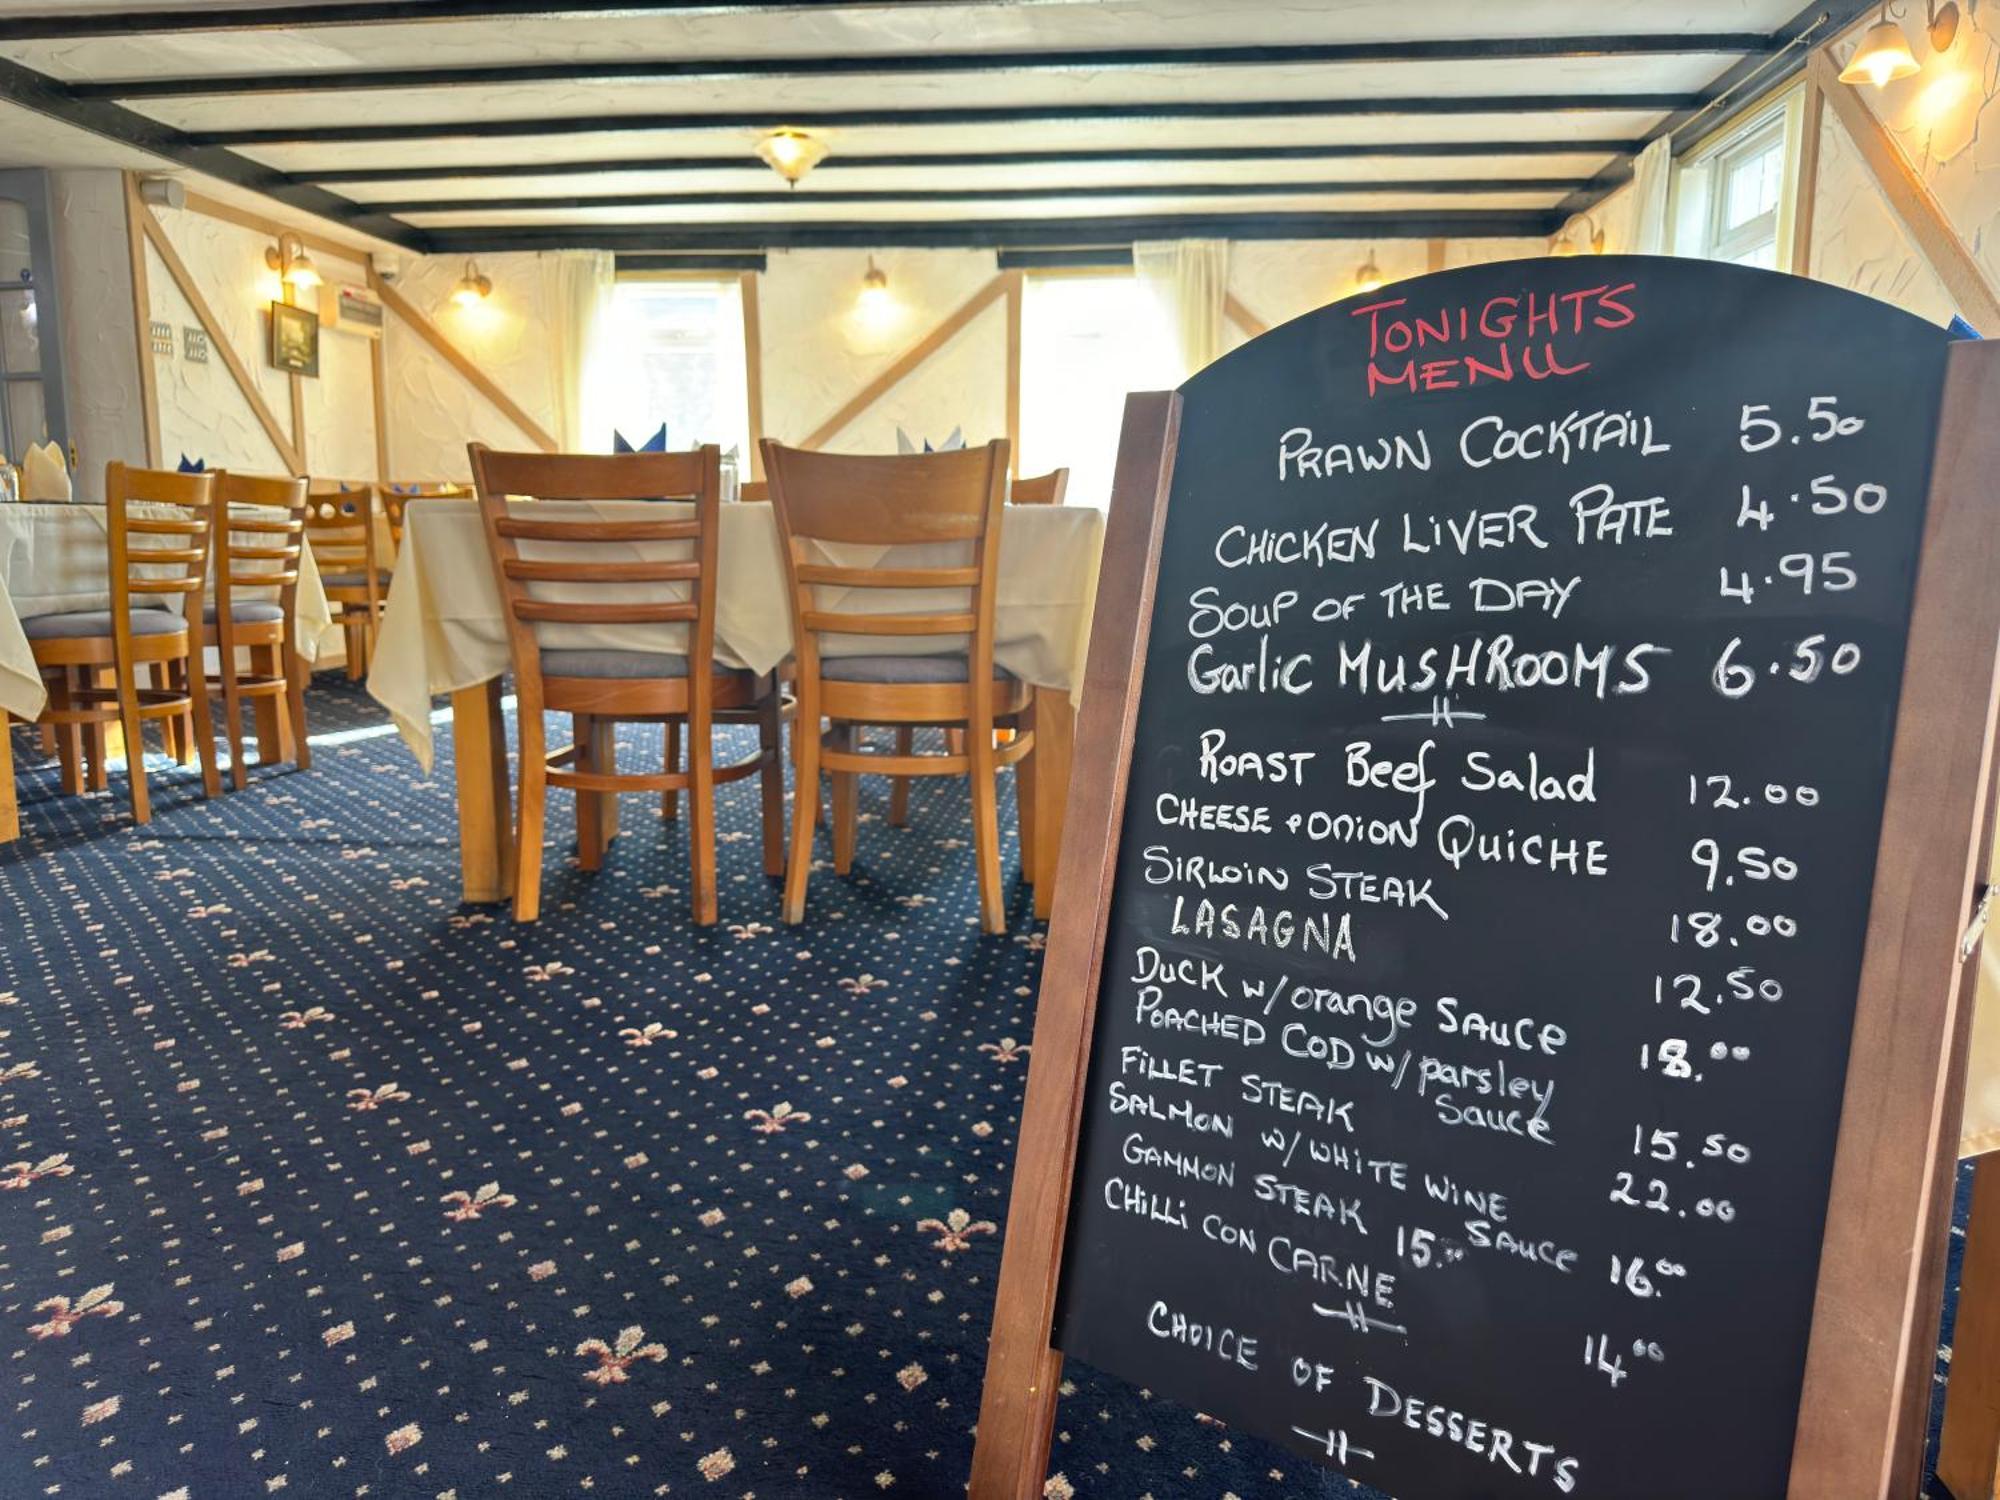 TONIGHTS
MENU
PRAWN COCKTAIL 5.50
CHICKEN LIVER PATE 4.50
SOUP OF THE DAY 4.95
Garlic MUSHROOMS 6.50
ROAST Beef Salad 12.00
CHEESE + ONION QUICHE 9.50
SIRLOIN STEAK 18.00
LASAGNA 12.50
DUCK w/ orange SAUCE 18.00
POACHED COD w/ parsley
Sauce 15.50
FILLET STEAK 22.00
SALMON w/ WHITE WINE
SAUCE 16.00
GAMMON STEAK 15.00
CHILLI CON CARNE 14.00
CHOICE OF DESSERTS